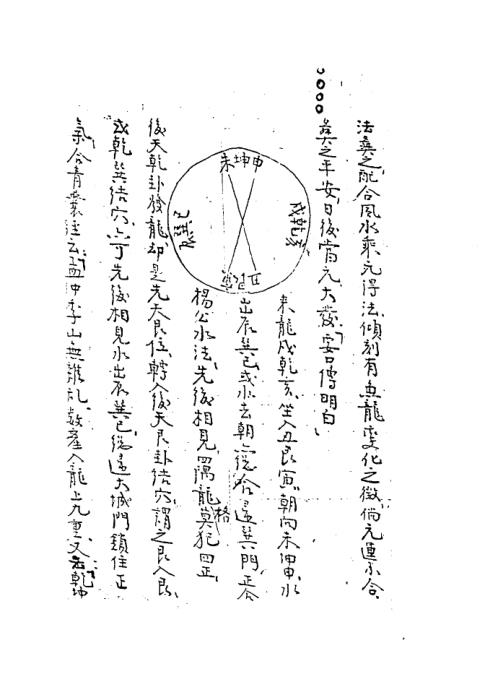 法奠之,配合風水乘元得法,傾刻有魚龍變化之徵,倘元運不合,
奠之平安,日後當元大發,安口傳明白、
未坤申
戌乾亥
丑艮寅
辰巽巳
來龍戌乾亥,坐入丑艮寅,朝向未坤申,水
出辰巽巳或水去朝歸合還巽門,正合
楊公水法,先後相見,四隅龍格莫犯四正,
後天乾卦發龍,却是先天艮位,轉入後天艮卦結穴,謂之艮入艮,
或乾巽結穴,亦可先後相見水出辰巽巳,從還大城門鎖住正
氣,合青囊註云孟仲季山無雜乱,数產入龍上九重,又云乾坤